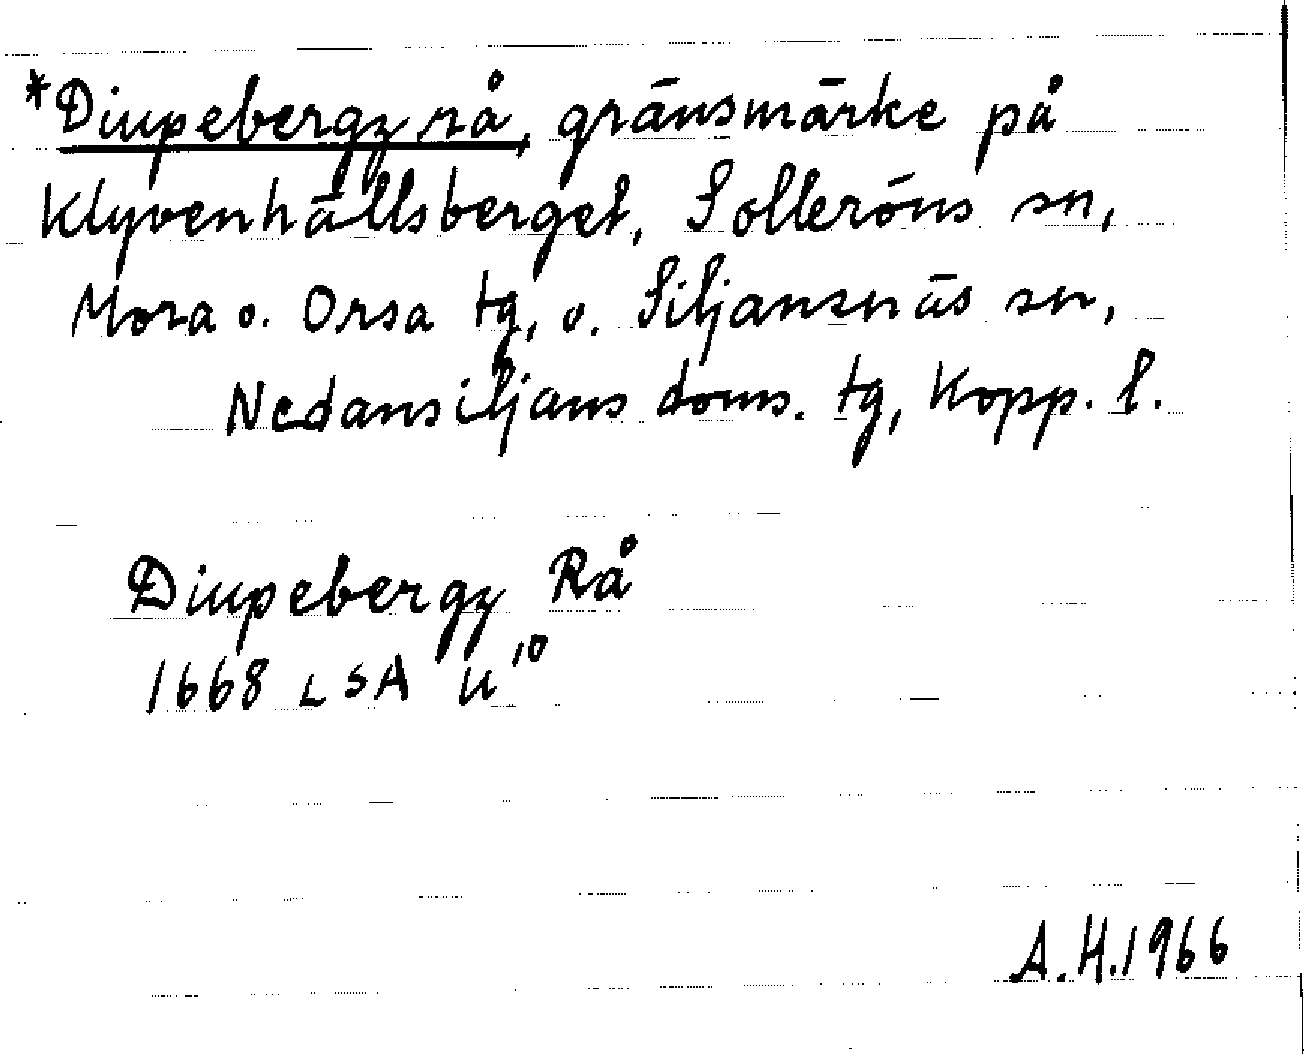 *Diupebergz rå, gränsmärke på
Klyvenhällsberget, Solleröns sn,
Mora o. Orsa tg, o. Siljansnäs sn,
Nedansiljans doms. tg, Kopp. l.
Diupebergz Rå
1668 LSA U¹⁰
A.H.1966